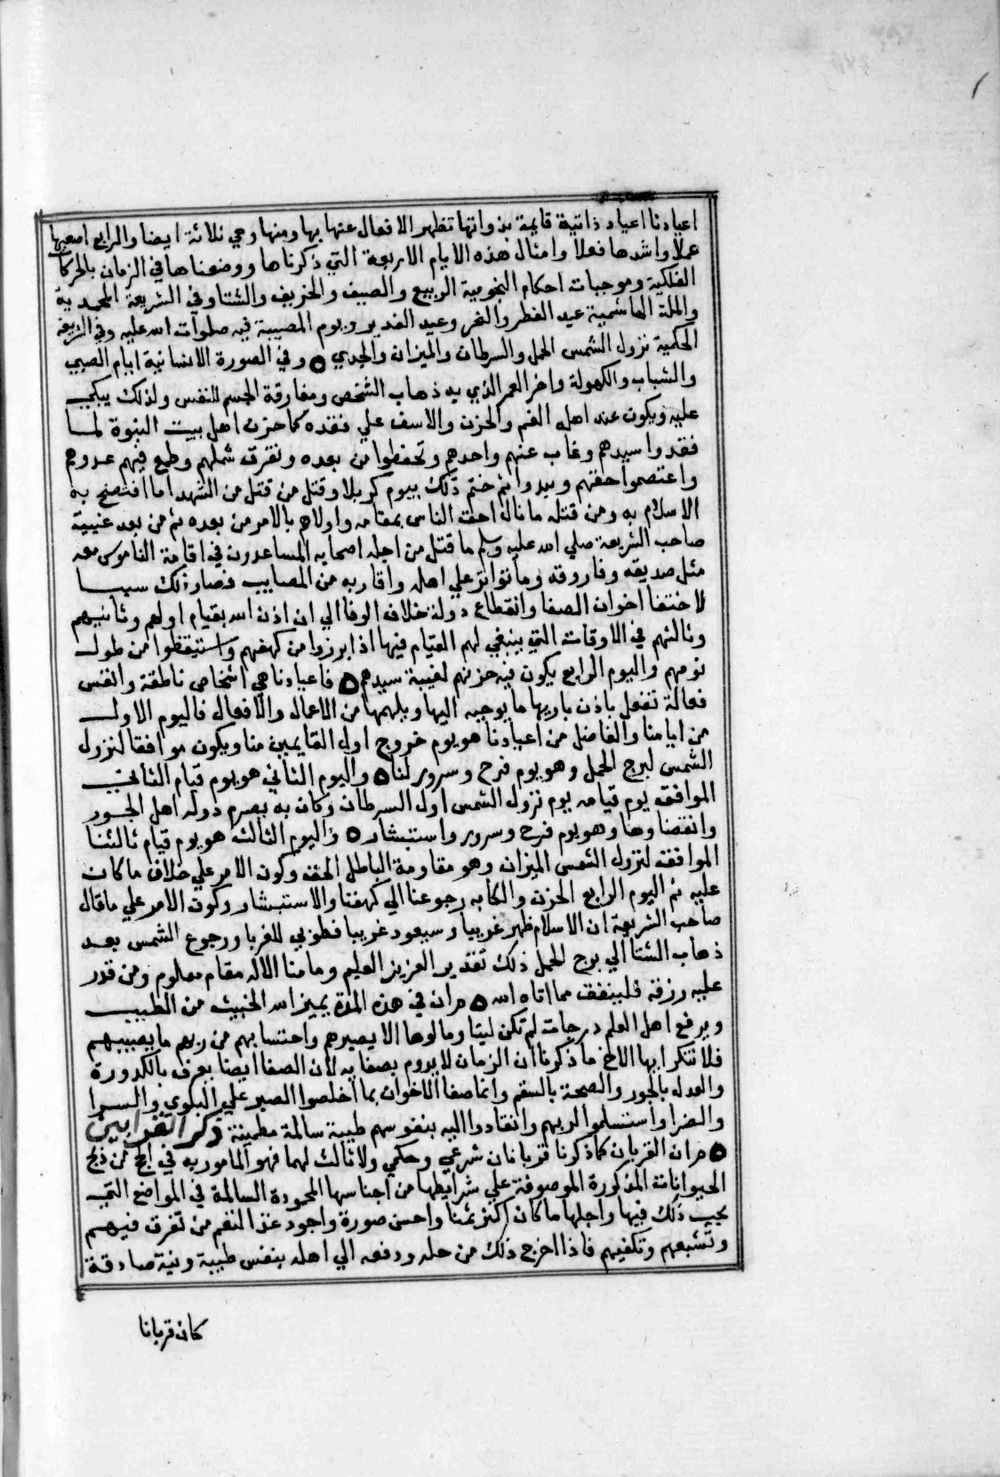 اعيادنا اعياد ذاتية قايمة بذواتها تظهر الافعال عنها بها ومنها وهي ثلاثة ايضا والرابع اصعبها
عملا واشدها فعلا وامثال هذه الايام الاربعة التي ذكرناها ووضعناها في الزمان بالحركات
الفلكية وموجبات احكام النجومية الربيع والصيف والخريف والشتا وفي الشريعة المحمدية
والملة الهاشمية عيد الفطر والنحر وعيد الغدير ويوم المصيبة فيه صلوات الله عليه وفي الشريعة
الحكمية نزول الشمس الحمل والسرطان والميزان والجدي ٥ وفي الصورة الانسانية ايام الصبي
والشباب والكهولة واخر العمر الذي به ذهاب الشخص ومفارقة الجسم للنفس ولذلك يبكي
عليه ويكون عند اهله الغم والحزن والاسف علي فقده كما حزن اهل بيت النبوة لما
فقدوا سيدهم وغاب عنهم واحدهم وتخطفوا من بعده وتفرق شملهم وطمع فيهم عدوهم
واغتصبوا حقهم وبددوا ثم ختم ذلك بيوم كربلا وقتل من قتل من الشهدا ما افتضح به
الاسلام به ومن قتله ما نال احق الناس بمقامه واولاه بالامر من بعده ثم من بعد غيبة
صاحب الشريعة صلي الله عليه وسلم ما قتل من اجله اصحابه المساعدون في اقامة الناموس معه
مثل صديقه وفاروقه وما تواتر علي اهله واقاربه من المصايب فصار ذلك سببا
لاختفا اخوان الصفا وانقطاع دولة خلان الوفا الي ان اذن الله بقيام اولهم وثانيهم
وثالثهم في الاوقات التي ينبغي لهم القيام فيها اذا برزوا من كهفهم واستيقظوا من طول
نومهم واليوم الرابع يكون فيه حزنهم لغيبة سيدهم ٥ فاعيادنا هي اشخاص ناطقة وانفس
فعالة تفعل باذن باريها ما يوجبه اليها ويلهمها من الاعمال والافعال فاليوم الاول
من ايامنا والفاضل من اعيادنا هو يوم خروج اول القايمين منا ويكون موافقا لنزول
الشمس لبرج الحمل وهو يوم فرح وسرور لنا ٥ واليوم الثاني هو يوم قيام الثاني
الموافقه يوم قيامه يوم نزول الشمس اول السرطان وكان به يصرم دوله اهل الجور
وانقضاوها وهو يوم فرح وسرور واستبشار ٥ واليوم الثالث هو يوم قيام ثالثنا
الموافقه لنزول الشمس الميزان وهو مقاومة الباطل الحق وكون الامر علي خلاف ما كان
عليه ثم اليوم الرابع الحزن والكابه رجوعنا الي كهفنا والاستبشار وكون الامر علي ما قال
صاحب الشريعة ان الاسلام ظهر غريبا وسيعود غريبا فطوبي للغربا ورجوع الشمس بعد
ذهاب الشتا الي برج الحمل ذلك تقدير العزيز العليم وما منا الا له مقام معلوم ومن قدر
عليه رزقه فلينفق مما اتاه الله ٥ مران في هذه المدة يميز الله الخبيث من الطيب
ويرفع اهل العلم درجات لم تكن لينا ومالوها الا بصبرهم واحتسابهم من ربهم ما يصيبهم
فلا تنكر ايها الاخ ما ذكرنا ان الزمان لا يدوم بصفايه لان الصفا ايضا يعرف بالكدورة
والعدله بالجور والصحة بالسقم وانما صفا الاخوان بما اخلصوا الصبر علي البلوي والسرا
والضرا واستسلموا لربهم وانقادوا اليه بنفوسهم طيبة سالمة مطمينة ذكر القرابين
٥ مران القربان كما ذكرنا قربانان شرعي وحكمي ولا ثالث لهما فهو المامور به في الحج من ذبح
الحيوانات المذكورة الموصوفة علي شرايطها من اجناسها المحمودة السالمة في المواضع التي
يجب ذلك فيها واجلها ما كان اكثر ثمنا واحسن صورة واجود عند النعم من تفرق فيهم
وتشبعهم وتكفيهم فاذا اخرج ذلك من حله ودفعه الي اهله بنفس طيبة ونية صادقة
كان قربانا